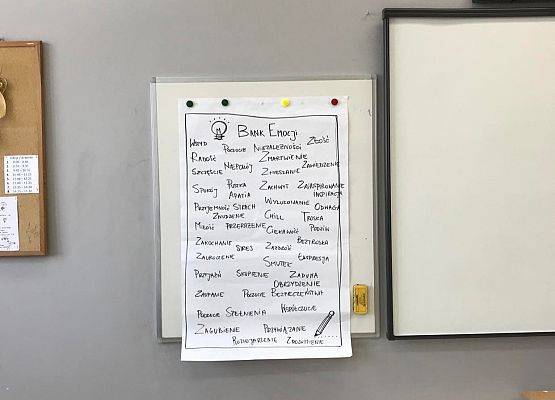 Bank Emocji
Wstyd Poczucie Niezależności Złość
Radość Zmartwienie
Szczęście Niepokój Zawiedzenie
Zmieszanie
Spokój Pustka Zachwyt Zainspirowanie
Apatia Inspiracja
Wyluzowanie
Przyjemność Strach Odwaga
Znudzenie Chill Troska
Miłość Przerażenie Ciekawość Podziw
Zakochanie Stres Zazdrość Beztroska
Zauroczenie Smutek Ekspresja
Przyjaźń Skupienie Zaduma
Obrzydzenie
Zaufanie Poczucie Bezpieczeństwa
Poczucie Spełnienia Współczucie
Zagubienie Przywiązanie
Rozczarowanie Zrozumienie